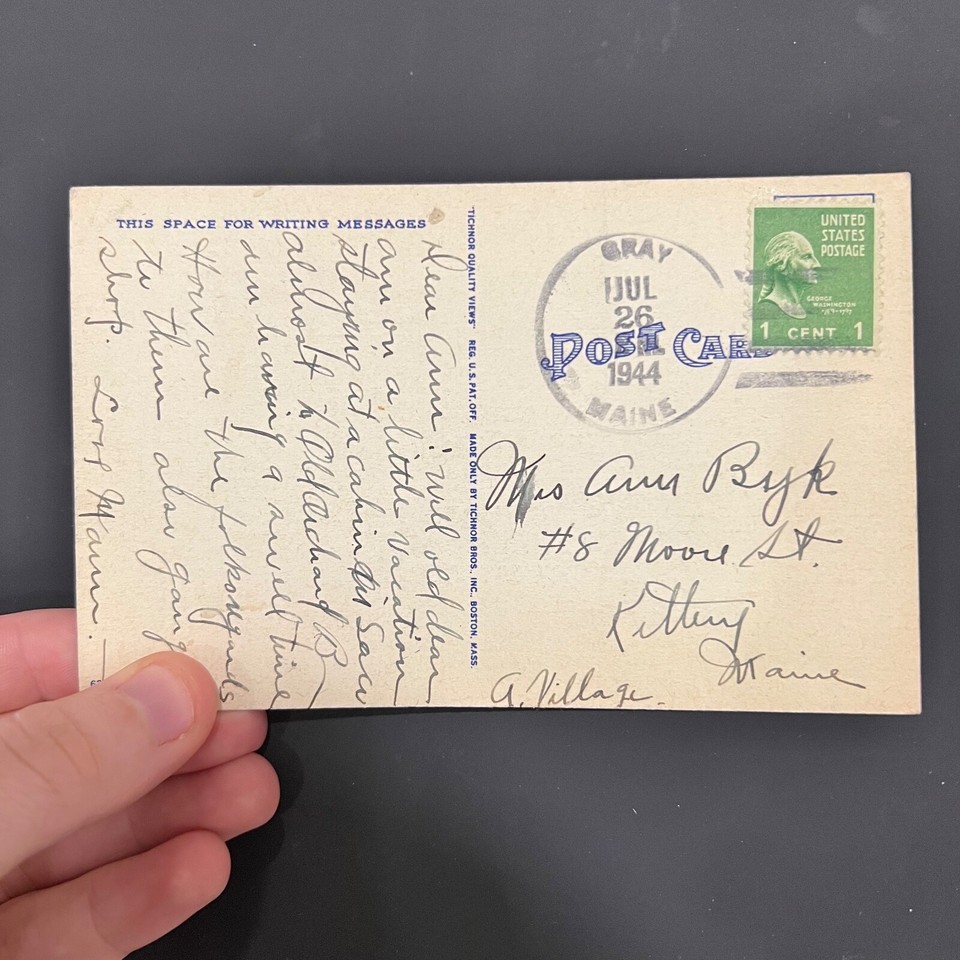 THIS SPACE FOR WRITING MESSAGES
Dear Ann: Well old dear
am on a little vacation
staying at a cabin in Saco
almost to Old Orchard B
am having a swell time
How are the folks regards
to them also gang
shop. Love Mann.
"TICHNOR QUALITY VIEWS" REG. U.S. PAT. OFF. MADE ONLY BY TICHNOR BROS., INC., BOSTON, MASS.
GRAY
JUL
26
1944
MAINE
POST CARD
UNITED
STATES
POSTAGE
GEORGE
WASHINGTON
1 CENT 1
Mrs Ann Byk
#8 Moore St.
Kittery
Maine
A. Village.